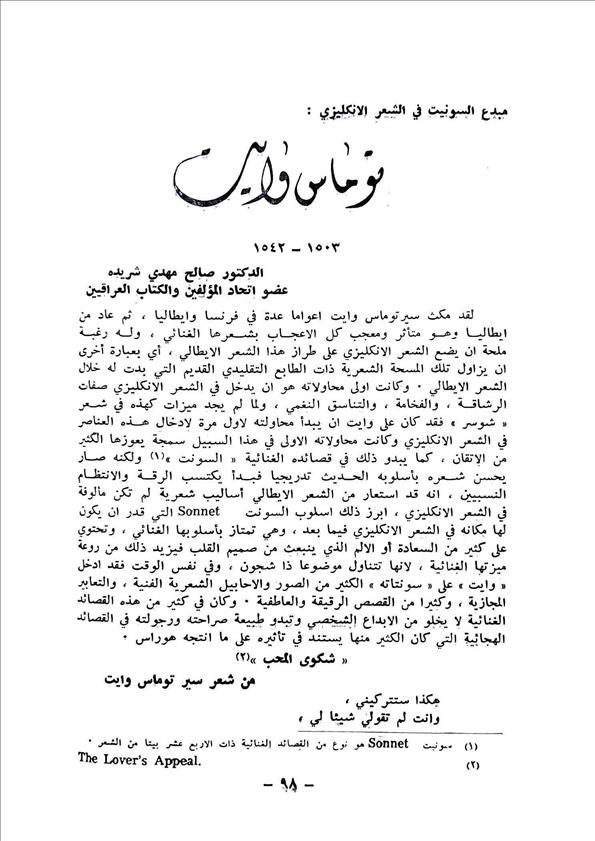 مبدع السونيت في الشعر الانكليزي :
توماس وايت
١٥٠٣ ــ ١٥٤٢
الدكتور صالح مهدي شريده
عضو اتحاد المؤلفين والكتاب العراقيين
لقد مكث سير توماس وايت اعواما عدة في فرنسا وايطاليا ، ثم عاد من
ايطاليا وهو متأثر ومعجب كل الاعجاب بشعرها الغنائي ، وله رغبة
ملحة ان يضع الشعر الانكليزي على طراز هذا الشعر الايطالي ، أي بعبارة أخرى
ان يزاول تلك المسحة الشعرية ذات الطابع التقليدي القديم التي بدت له خلال
الشعر الايطالي ٠ وكانت اولى محاولاته هو ان يدخل في الشعر الانكليزي صفات
الرشاقة ، والفخامة ، والتناسق النغمي ، ولما لم يجد ميزات كهذه في شعر
« شوسر » فقد كان على وايت ان يبدأ محاولته لاول مرة لادخال هذه العناصر
في الشعر الانكليزي وكانت محاولاته الاولى في هذا السبيل سمجة يعوزها الكثير
من الاتقان ، كما يبدو ذلك في قصائده الغنائية « السونت »(١) ولكنه صار
يحسن شعره بأسلوبه الحديث تدريجيا فبدأ يكتسب الرقة والانتظام
النسبيين ، انه قد استعار من الشعر الايطالي أساليب شعرية لم تكن مألوفة
في الشعر الانكليزي ، ابرز ذلك اسلوب السونت Sonnet التي قدر ان يكون
لها مكانه في الشعر الانكليزي فيما بعد ، وهي تمتاز بأسلوبها الغنائي ، وتحتوي
على كثير من السعادة أو الالم الذي ينبعث من صميم القلب فيزيد ذلك من روعة
ميزتها الغنائية ، لانها تتناول موضوعا ذا شجون ، وفي نفس الوقت فقد ادخل
« وايت » على « سونتاته » الكثير من الصور والاحابيل الشعرية الفنية ، والتعابير
المجازية ، وكثيرا من القصص الرقيقة والعاطفية ٠ وكان في كثير من هذه القصائد
الغنائية لا يخلو من الابداع الشخصي وتبدو طبيعة صراحته ورجولته في القصائد
الهجائية التي كان الكثير منها يستند في تأثيره على ما انتجه هوراس ٠
« شكوى المحب »(٢)
من شعر سير توماس وايت
هكذا ستتركيني ،
وانت لم تقولي شيئا لي ،
(١) سونيت Sonnet هو نوع من القصائد الغنائية ذات الاربع عشر بيتا من الشعر ٠
(٢) The Lover's Appeal.
- ٩٨ -